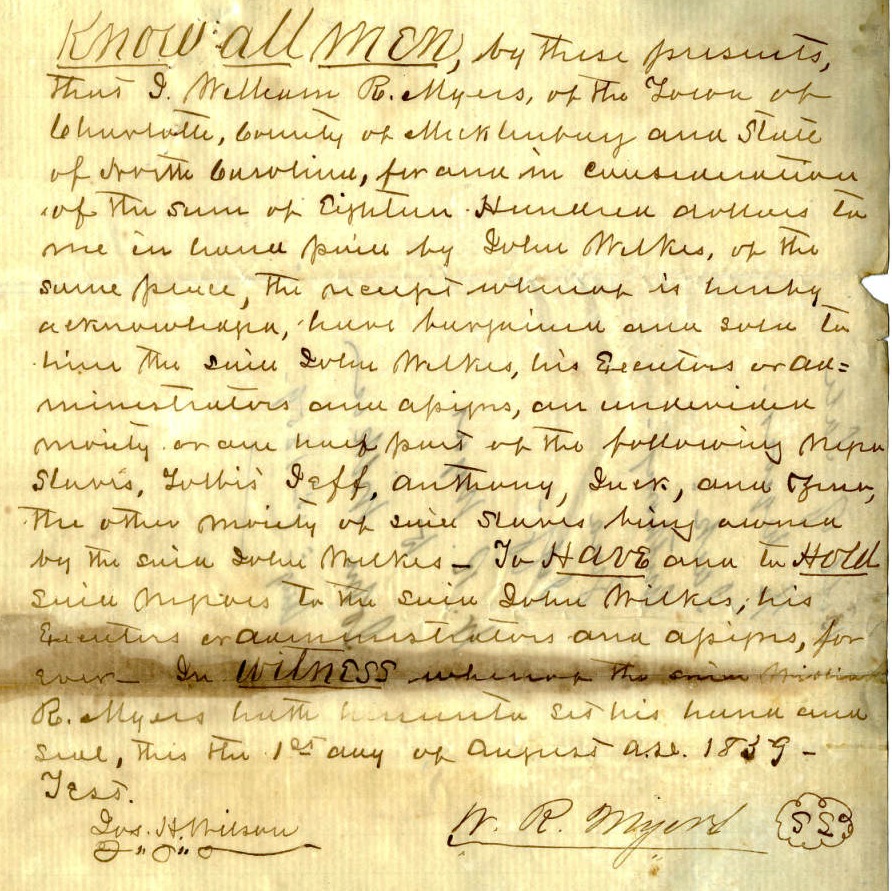 Know all men, by these presents,
that I. William R. Myers, of the Town of
Charlotte, County of Mecklenburg and State
of North Carolina, for and in consideration
of the sum of Eighteen Hundred dollars to
me in hand paid by John Wilkes, of the
same place, the receipt whereof is hereby
acknowledged, have bargained and sold to
him the said John Wilkes, his Executors or ad=
ministrators and assigns, an undivided
moiety or one half part of the following Negro
Slaves, Jeff, Anthony, and
the other moiety of said Slaves being owned
by the said John Wilkes – To HAVE and to HOLD
said Negroes to the said John Wilkes, his
Executors or administrators and assigns, for
ever – In WITNESS whereof the said William
R. Myers hath hereunto set his hand and
seal, this the 1st day of August A.D. 18 9 –
Test.
Jos. H. Wilson
W. R. Myers